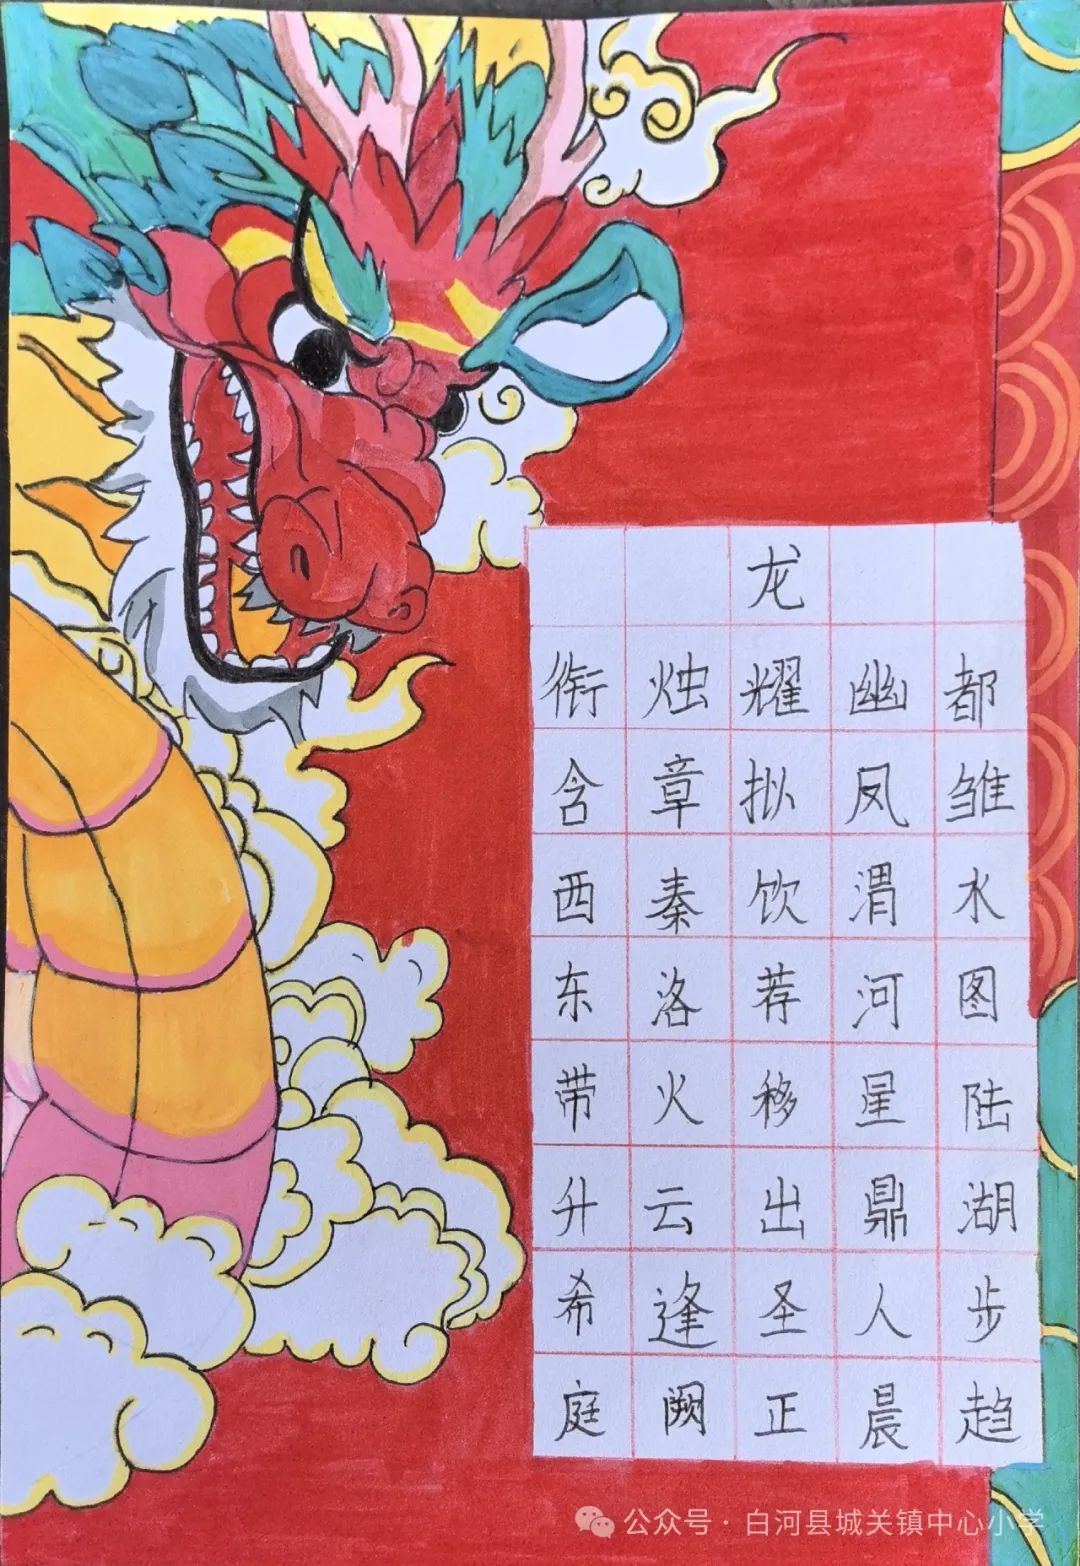 龙
衔烛耀幽都
含章拟凤雏
西秦饮渭水
东洛荐河图
带火移星陆
升云出鼎湖
希逢圣人步
庭阙正晨趋
公众号·白河县城关镇中心小学